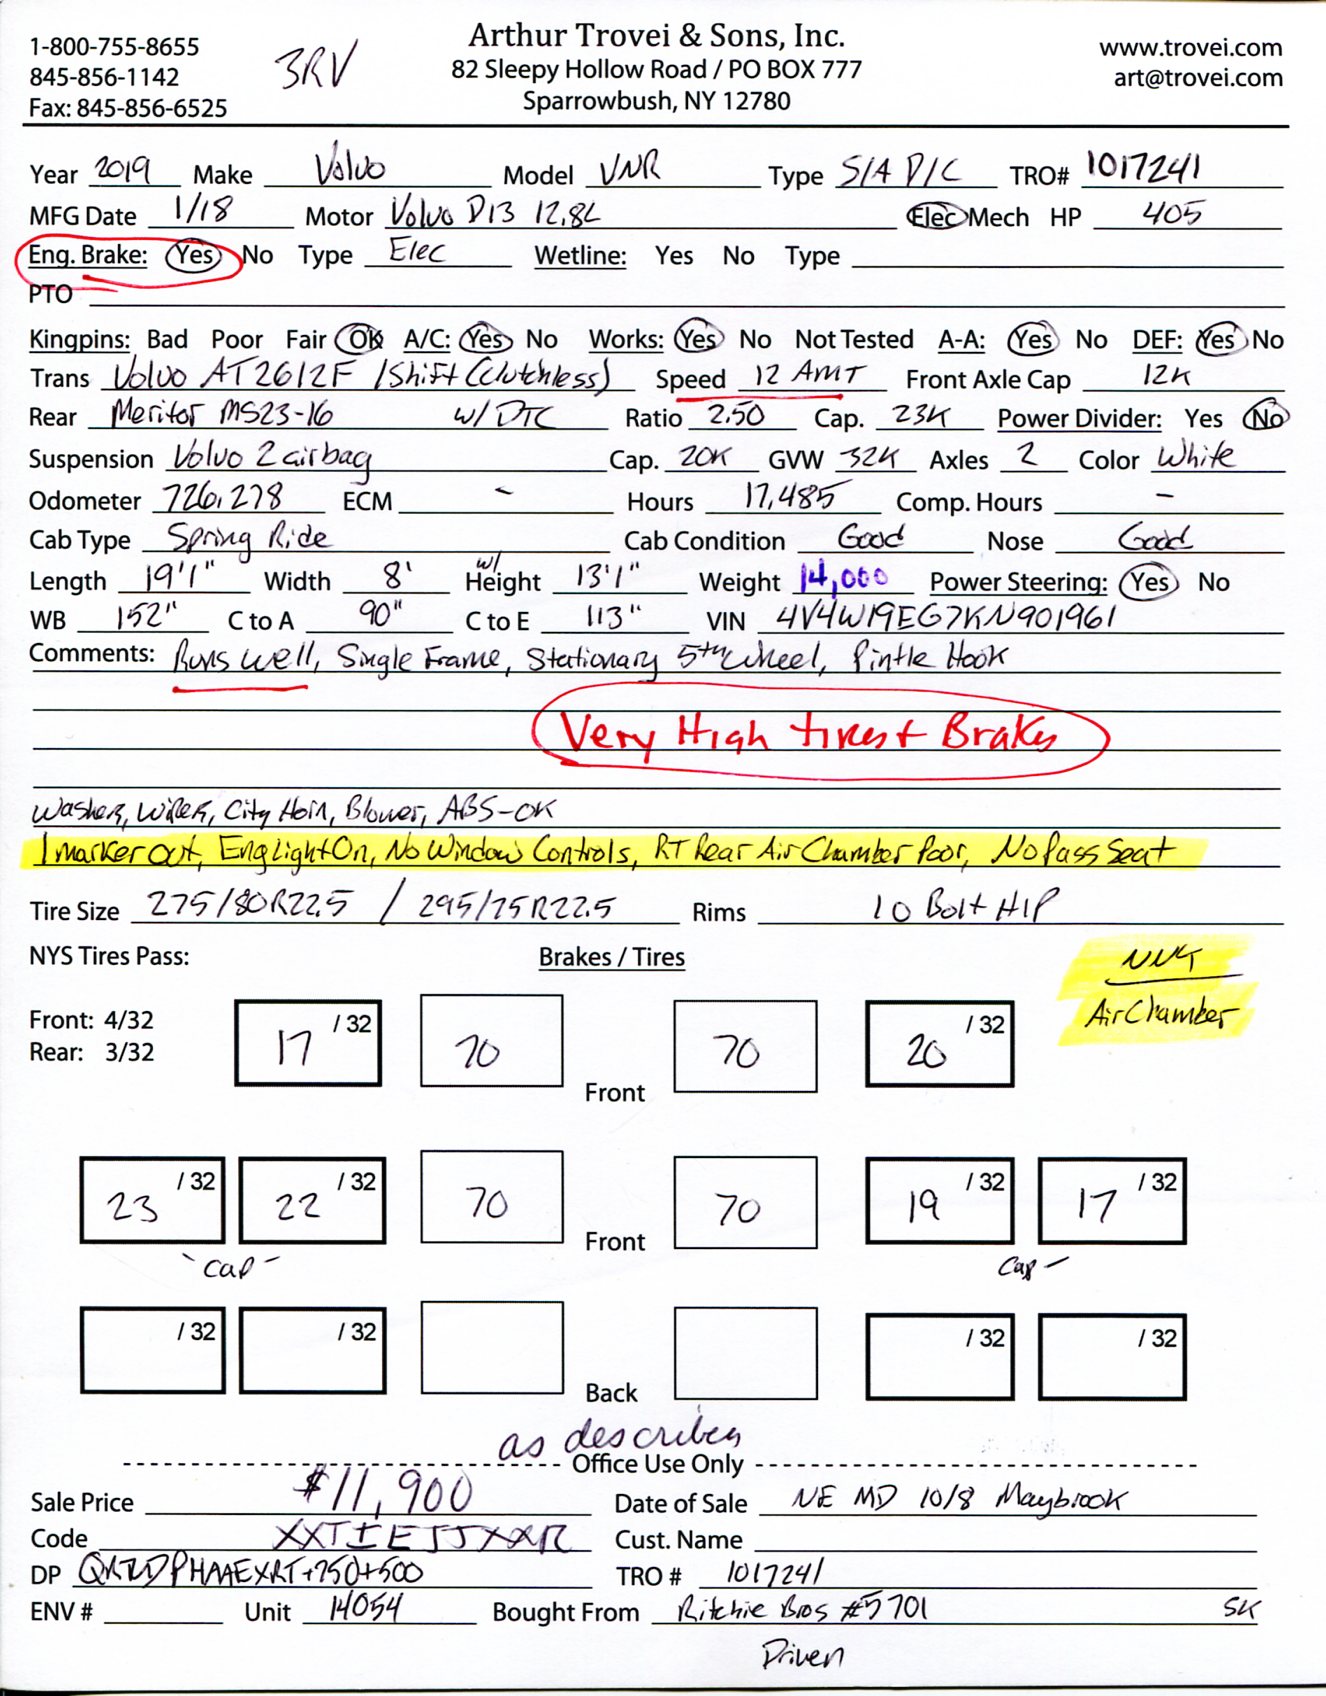 Arthur Trovei & Sons, Inc.
1-800-755-8655 3RV 82 Sleepy Hollow Road / PO BOX 777 www.trovei.com
845-856-1142 Sparrowbush, NY 12780 art@trovei.com
Fax: 845-856-6525
Year 2019 Make Volvo Model VNR Type S/A D/C TRO# 1017241
MFG Date 1/18 Motor Volvo D13 12.8L Elec Mech HP 405
Eng. Brake: Yes No Type Elec Wetline: Yes No Type
PTO
Kingpins: Bad Poor Fair OK A/C: Yes No Works: Yes No Not Tested A-A: Yes No DEF: Yes No
Trans Volvo AT2612F /Shift (Clutchless) Speed 12 AMT Front Axle Cap 12K
Rear Meritor MS23-16 w/ DTC Ratio 2.50 Cap. 23K Power Divider: Yes No
Suspension Volvo 2 airbag Cap. 20K GVW 32K Axles 2 Color White
Odometer 726,278 ECM - Hours 17,485 Comp. Hours -
Cab Type Spring Ride Cab Condition Good Nose Good
Length 19'1" Width 8' w/ Height 13'1" Weight 14,000 Power Steering: Yes No
WB 152" C to A 90" C to E 113" VIN 4V4W19EG7KN901961
Comments: Runs well, Single Frame, Stationary 5th wheel, Pintle Hook
Very High tires + Brakes
Washer, Wiper, City Horn, Blower, ABS-OK
1 marker out, Eng Light On, No Window Controls, RT Rear Air Chamber Poor, No Pass Seat
Tire Size 275/80R22.5 / 295/75R22.5 Rims 10 Bolt HP
NYS Tires Pass: Brakes / Tires
Air Chamber
Front: 4/32 17 /32 70 70 20 /32
Rear: 3/32
Front
23 /32 22 /32 70 70 19 /32 17 /32
Front
-Cap- Cap-
/32 /32 /32 /32
Back
as describes
Office Use Only
Sale Price $11,900 Date of Sale NE MD 10/8 Maybrook
Code Cust. Name
DP TRO # 1017241
ENV # Unit 14054 Bought From Ritchie Bros #5701 SK
Driven